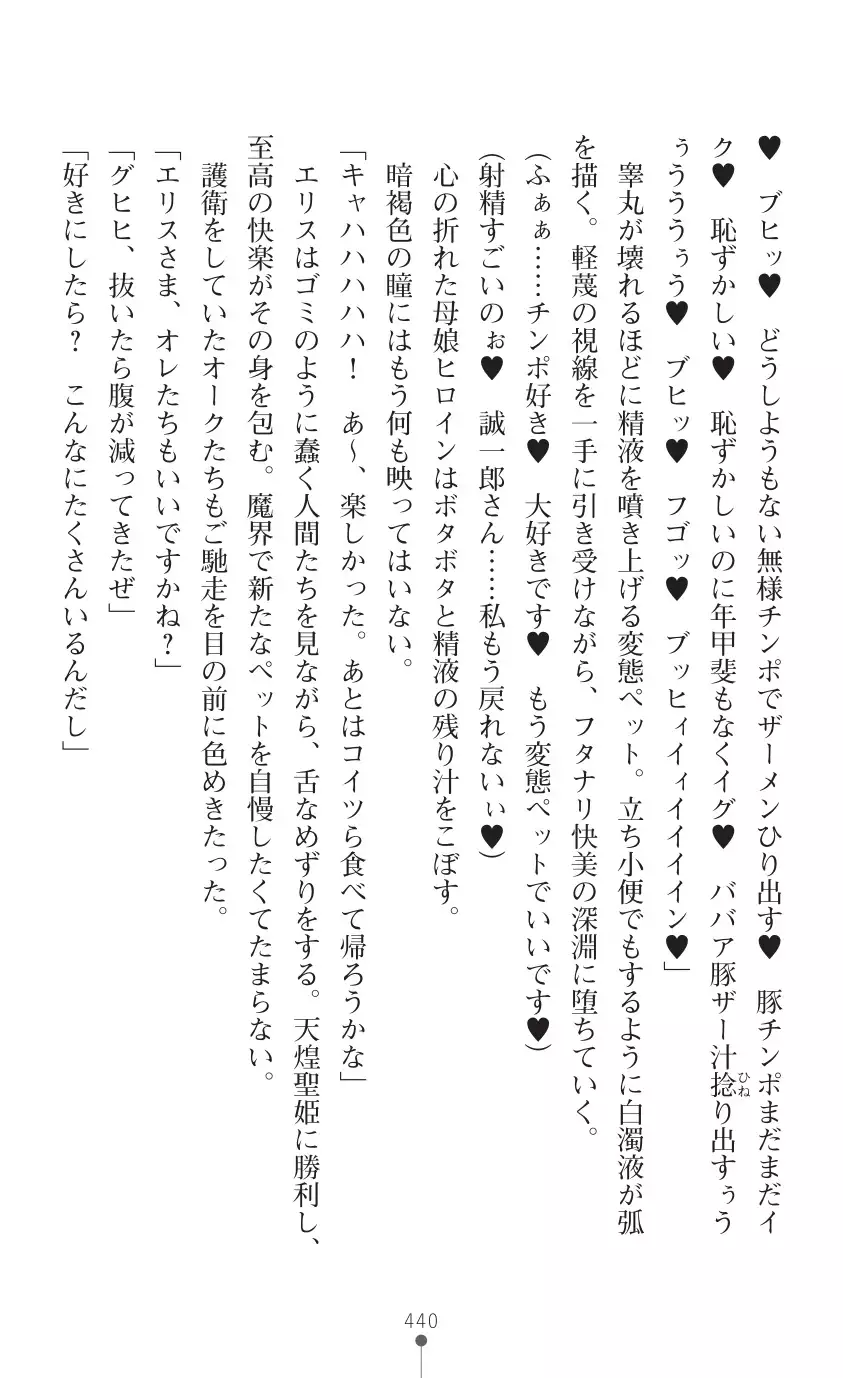 ♥　ブヒッ♥　どうしようもない無様チンポでザーメンひり出す♥　豚チンポまだまだイ
ク♥　恥ずかしい♥　恥ずかしいのに年甲斐もなくイグ♥　ババア豚ザー汁捻り出すぅう
ひね
ぅうううぅう♥　ブヒッ♥　フゴッ♥　ブッヒィイィイイイイン♥」
　睾丸が壊れるほどに精液を噴き上げる変態ペット。立ち小便でもするように白濁液が弧
を描く。軽蔑の視線を一手に引き受けながら、フタナリ快美の深淵に堕ちていく。
(ふぁぁ……チンポ好き♥　大好きです♥　もう変態ペットでいいです♥)
(射精すごいのぉ♥　誠一郎さん……私もう戻れないぃ♥)
　心の折れた母娘ヒロインはボタボタと精液の残り汁をこぼす。
　暗褐色の瞳にはもう何も映ってはいない。
「キャハハハハハ！　あ～、楽しかった。あとはコイツら食べて帰ろうかな」
　エリスはゴミのように蠢く人間たちを見ながら、舌なめずりをする。天煌聖姫に勝利し、
至高の快楽がその身を包む。魔界で新たなペットを自慢したくてたまらない。
　護衛をしていたオークたちもご馳走を目の前に色めきたった。
「エリスさま、オレたちもいいですかね？」
「グヒヒ、抜いたら腹が減ってきたぜ」
「好きにしたら？　こんなにたくさんいるんだし」
440